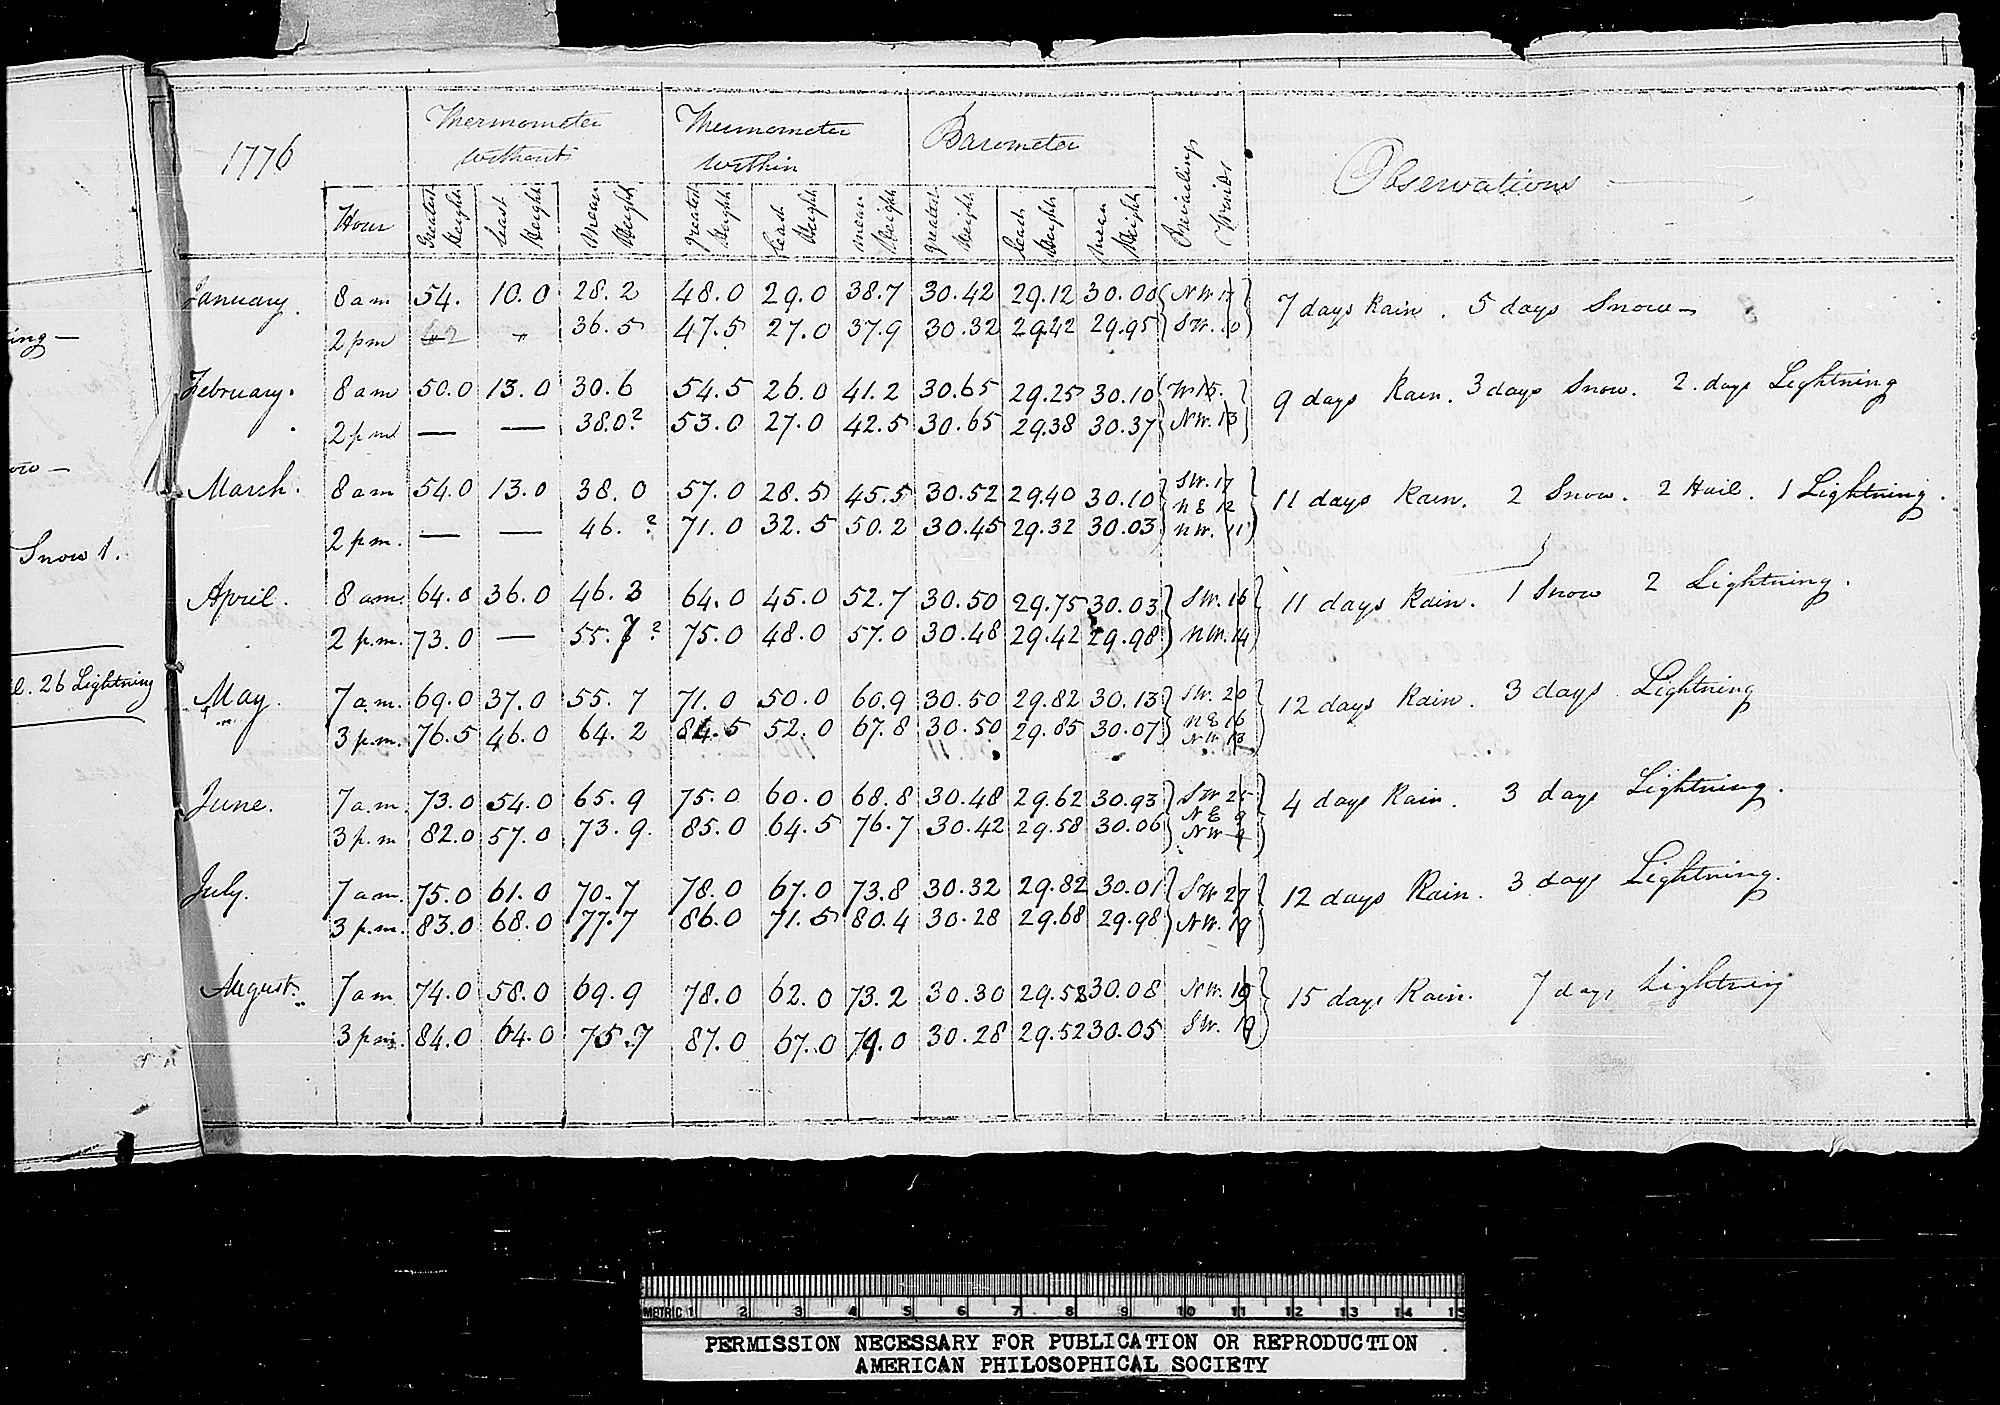 1776
Thermometer without
Thermometer within
Barometer
Prevailing Winds
Observations
Hour
Greatest Height
Least Height
Mean Height
greatest Height
Least Height
mean Height
greatest Height
Least Height
mean Height
January. 8 am 54. 10.0 28.2 48.0 29.0 38.7 30.42 29.12 30.00 NW. 17 7 days Rain. 5 days Snow—
2 pm " 36.5 47.5 27.0 37.9 30.32 29.42 29.95 SW. 10
February. 8 am 50.0 13.0 30.6 54.5 26.0 41.2 30.65 29.25 30.10 W. 15. 9 days Rain. 3 days Snow. 2. days Lightning
2 pm — — 38.0? 53.0 27.0 42.5 30.65 29.38 30.37 NW. 13
March. 8 am 54.0 13.0 38.0 57.0 28.5 45.5 30.52 29.40 30.10 SW. 17 11 days Rain. 2 Snow. 2 Hail. 1 Lightning.
NE 12
2 pm. — — 46. ? 71.0 32.5 50.2 30.45 29.32 30.03 NW. 11
April. 8 am. 64.0 36.0 46.3 64.0 45.0 52.7 30.50 29.75 30.03 SW. 16 11 days Rain. 1 Snow 2 Lightning.
2 p.m. 73.0 — 55.7 ? 75.0 48.0 57.0 30.48 29.42 29.98 NW. 14
May. 7 a.m. 69.0 37.0 55.7 71.0 50.0 60.9 30.50 29.82 30.13 SW. 20 12 days Rain. 3 days Lightning
NE 16
3 p.m. 76.5 46.0 64.2 84.5 52.0 67.8 30.50 29.85 30.07 NW 13
June. 7 a.m. 73.0 54.0 65.9 75.0 60.0 68.8 30.48 29.62 30.93 SW. 25 4 days Rain. 3 days Lightning.
NE 9
3 p.m 82.0 57.0 73.9. 85.0 64.5 76.7 30.42 29.58 30.06 NW 9
July. 7 am. 75.0 61.0 70.7 78.0 67.0 73.8 30.32 29.82 30.01 SW 27 12 days Rain. 3 days Lightning.
3 p.m. 83.0 68.0 77.7 86.0 71.5 80.4 30.28 29.68 29.98 NW. 19
August. 7 am 74.0 58.0 69.9 78.0 62.0 73.2 30.30 29.58 30.08 NW. 19 15 days Rain. 7 days Lightning
3 pm. 84.0 64.0 75.7 87.0 67.0 79.0 30.28 29.52 30.05 SW. 19
ing—
ow—
Snow 1.
l. 26 Lightning
METRIC 1 2 3 4 5 6 7 8 9 10 11 12 13 14 15
PERMISSION NECESSARY FOR PUBLICATION OR REPRODUCTION
AMERICAN PHILOSOPHICAL SOCIETY